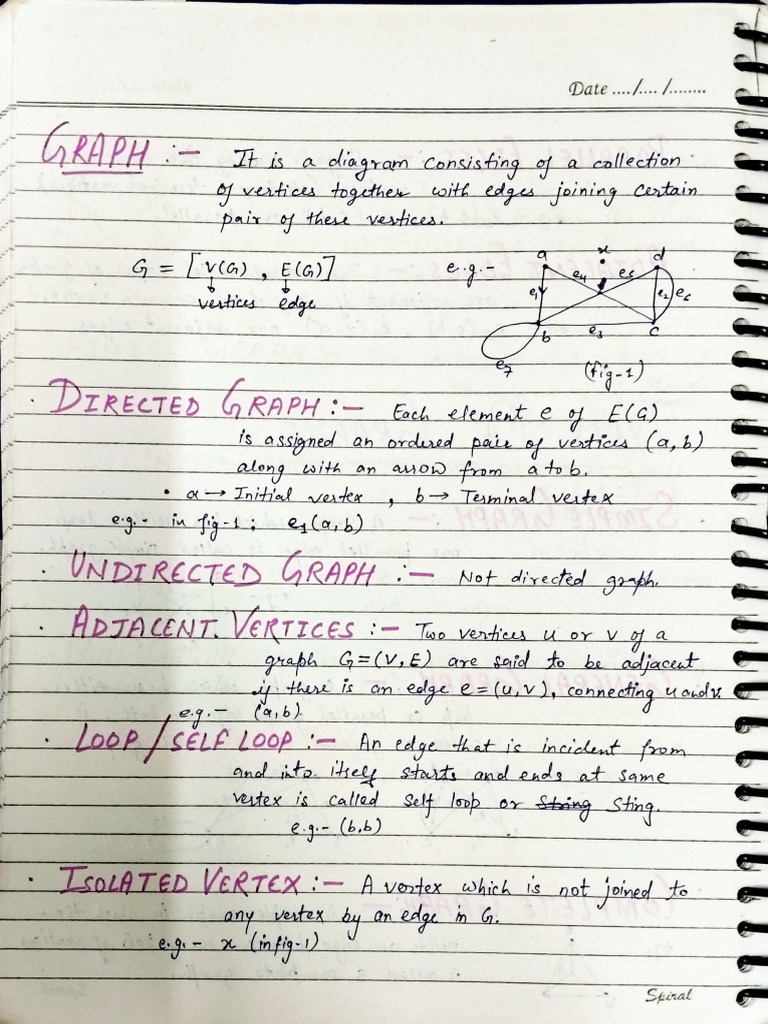 Date ..../..../........
GRAPH :- It is a diagram consisting of a collection
of vertices together with edges joining certain
pair of these vertices.
G = [V(G), E(G)] e.g.-
vertices edge
a x d
e4 e5
e1 e2 e6
b e3 c
e7
(fig-1)
DIRECTED GRAPH :- Each element e of E(G)
is assigned an ordered pair of vertices (a, b)
along with an arrow from a to b.
• a → Initial vertex , b → Terminal vertex
e.g.- in fig-1 ; e1(a, b)
• UNDIRECTED GRAPH :- Not directed graph.
• ADJACENT VERTICES :- Two vertices u or v of a
graph G=(V, E) are said to be adjacent
if there is an edge e = (u, v), connecting u and v.
e.g.- (a, b)
• LOOP / SELF LOOP :- An edge that is incident from
and into itself starts and ends at same
vertex is called self loop or String Sting.
e.g.- (b,b)
• ISOLATED VERTEX :- A vertex which is not joined to
any vertex by an edge in G.
e.g.- x (in fig-1)
Spiral